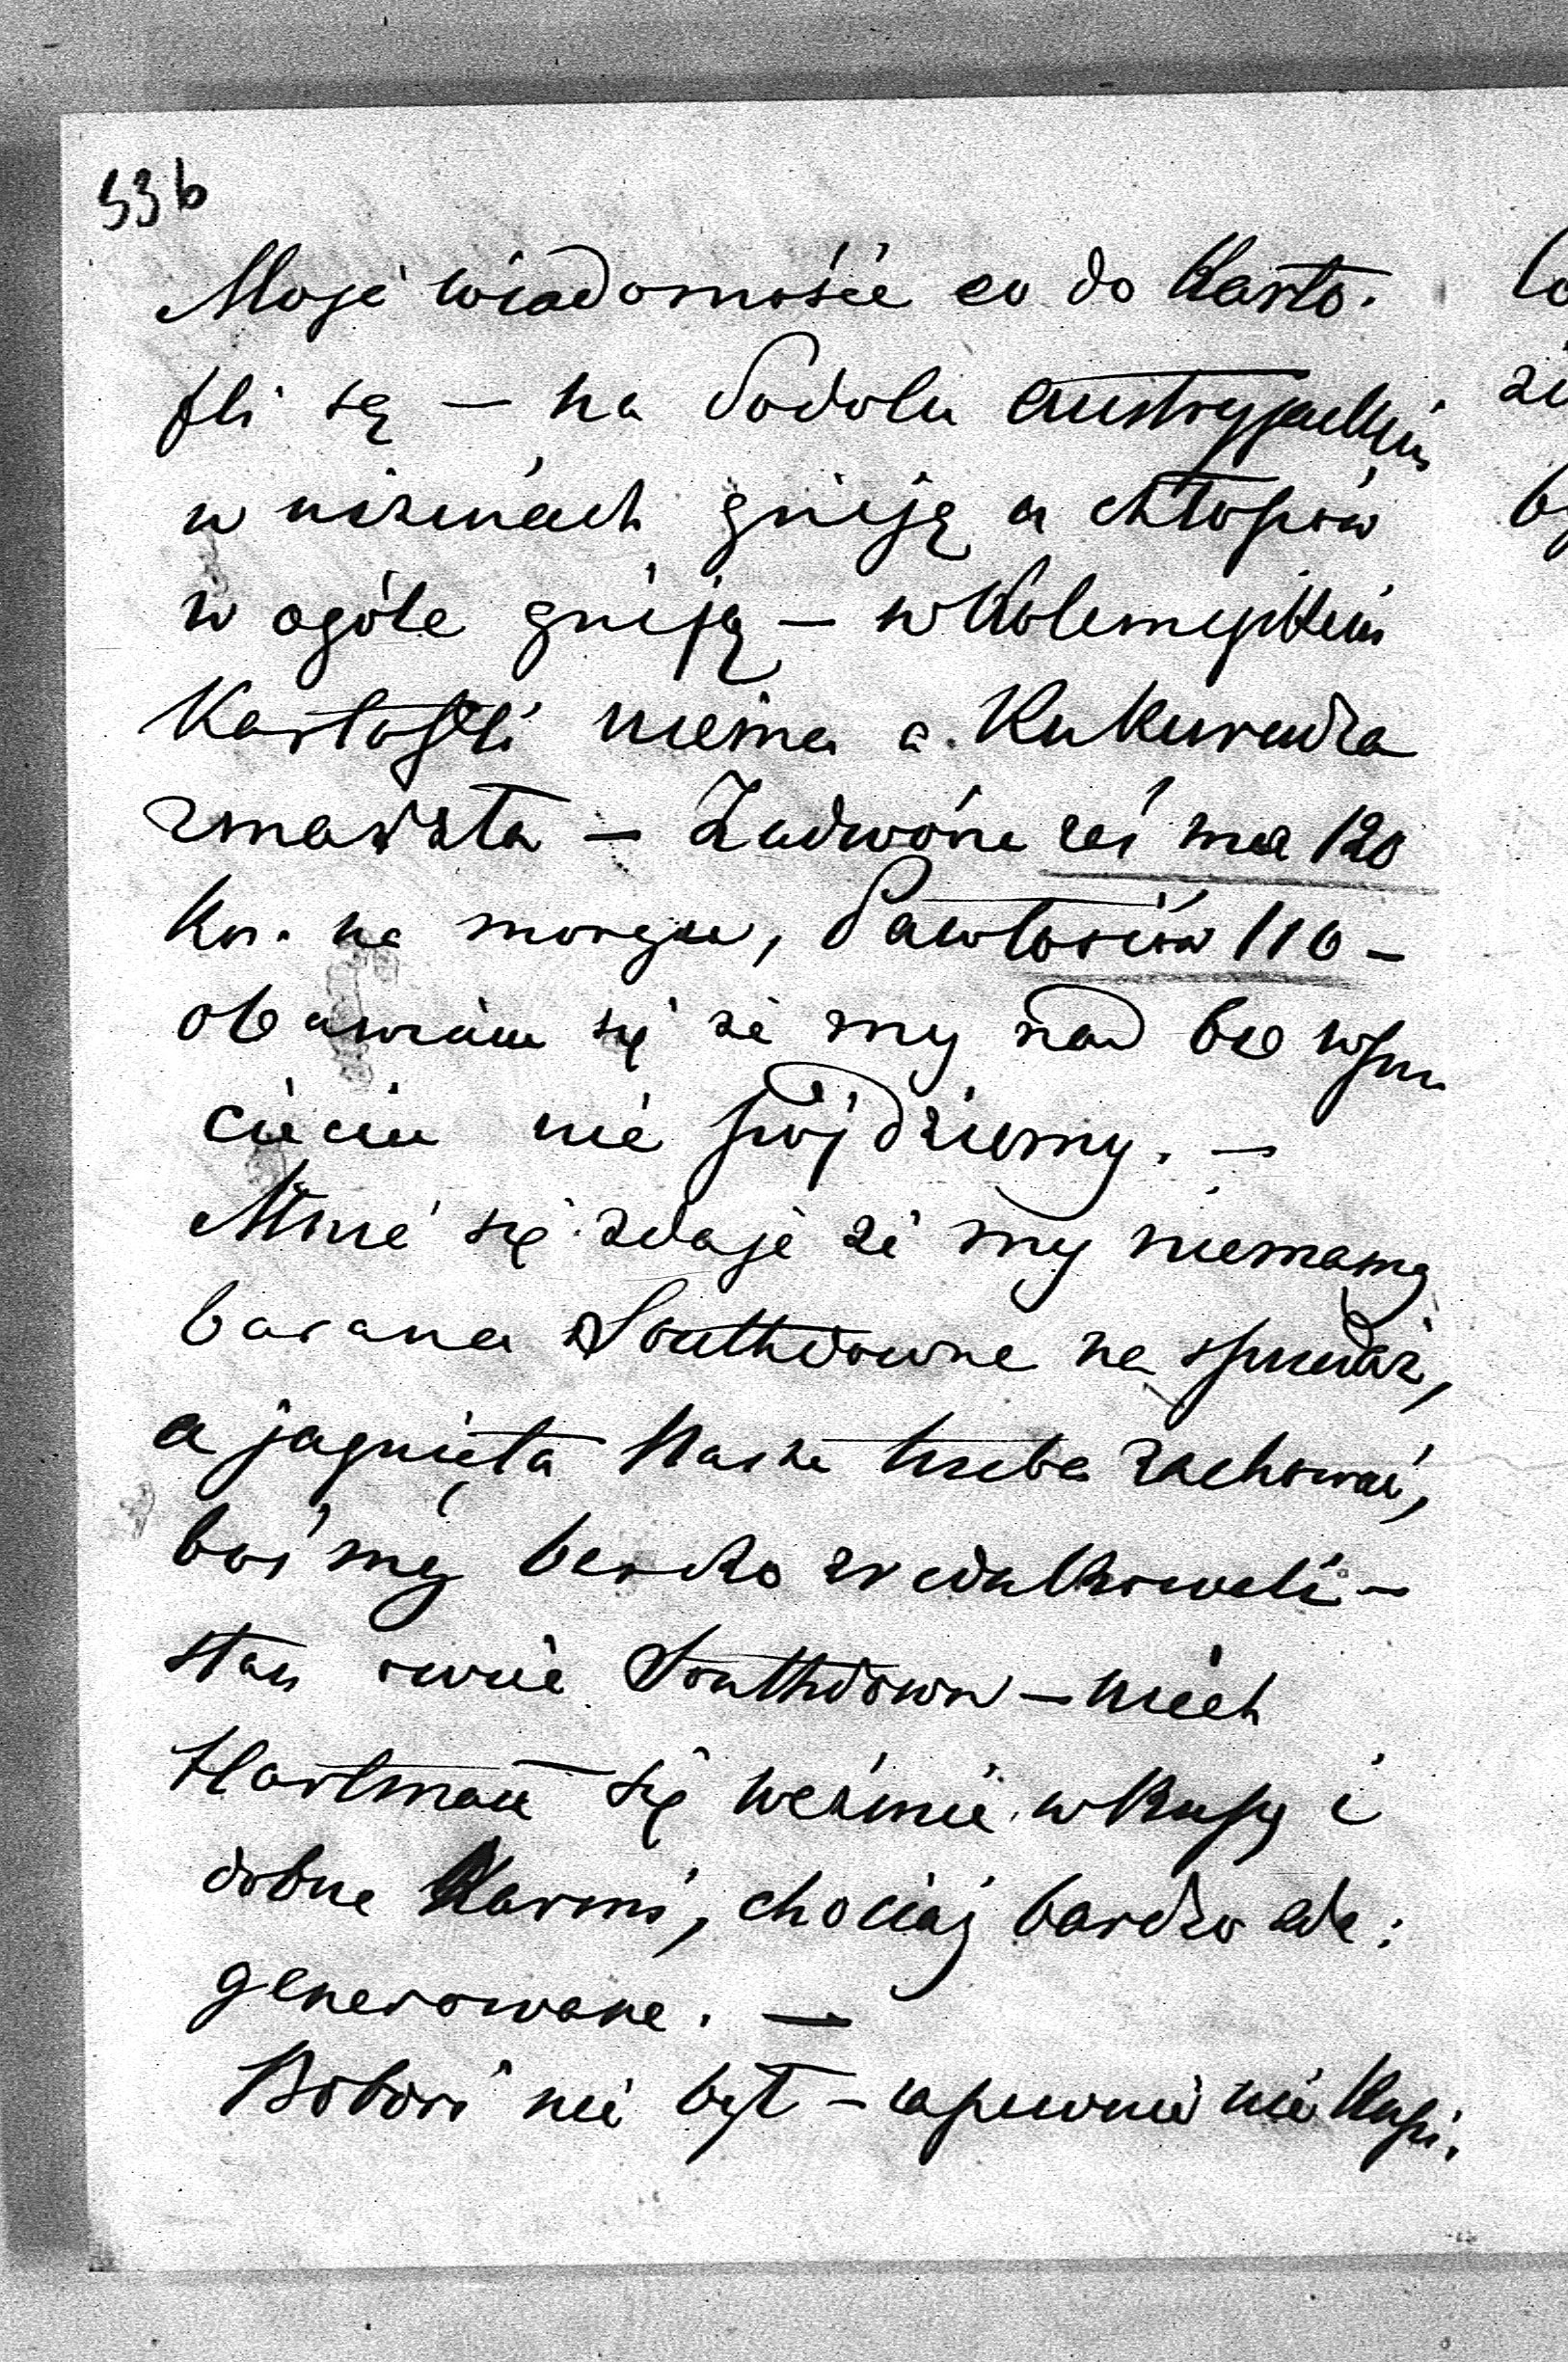 53b
Moje wiadomości co do karto-
fli są — na Podolu austryjackim
w nizinach gniją u chłopów
w ogóle gniją — w Kołomyjskim
Kartofli niema a Kukurudza
zmarzła — Zadwórze zaś ma 120
kor. na morgu, Pawłosiów 110 —
obawiam się że my nad 60 w
cięciu nie pójdziemy. —
Mnie się zdaje że my niemamy
barana Southdowne na sprzedaż,
a jagnięta nasze trzeba zachować,
bośmy bardzo zredukowali —
stan owiec Southdown — niech
Hartman się weźmie w kupy i
dobrze Karmi, chociaj bardzo zde:
generowane. —
nie był — zapewne nie kupi.
lo
że
by